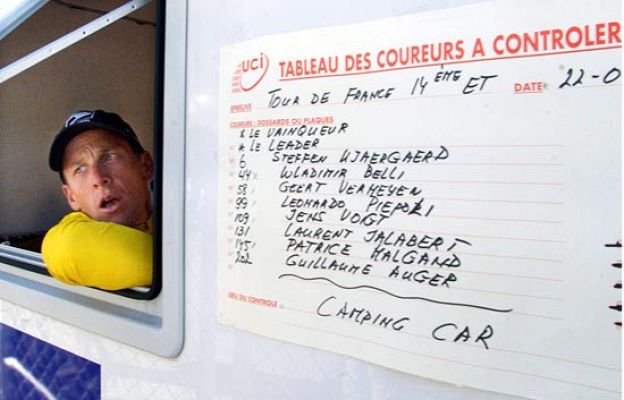 uci
TABLEAU DES COUREURS A CONTROLER
EPREUVE TOUR DE FRANCE 14 ÈME ET DATE: 22-0
COUREURS: DOSSARDS OU PLAQUES
* LE VAINQUEUR
* LE LEADER
6 STEFFEN KJAERGAERD
44 WLADIMIR BELLI
58 GEERT VERHEYEN
99 LEONARDO PIEPOLI
109 JENS VOIGT
131 LAURENT JALABERT
145 PATRICE HALGAND
202 GUILLAUME AUGER
LIEU DU CONTROLE CAMPING CAR